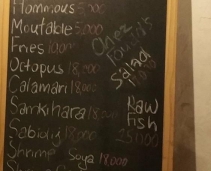 Hommous 5000
Moutable 5.000
Fries 1000
Octopus 18,000
Calamari 18.000
Samkihara 18.000
Sabidig 18.000
Shrimp Soya 18.000
Chez
Salad
Raw
Fish
25000